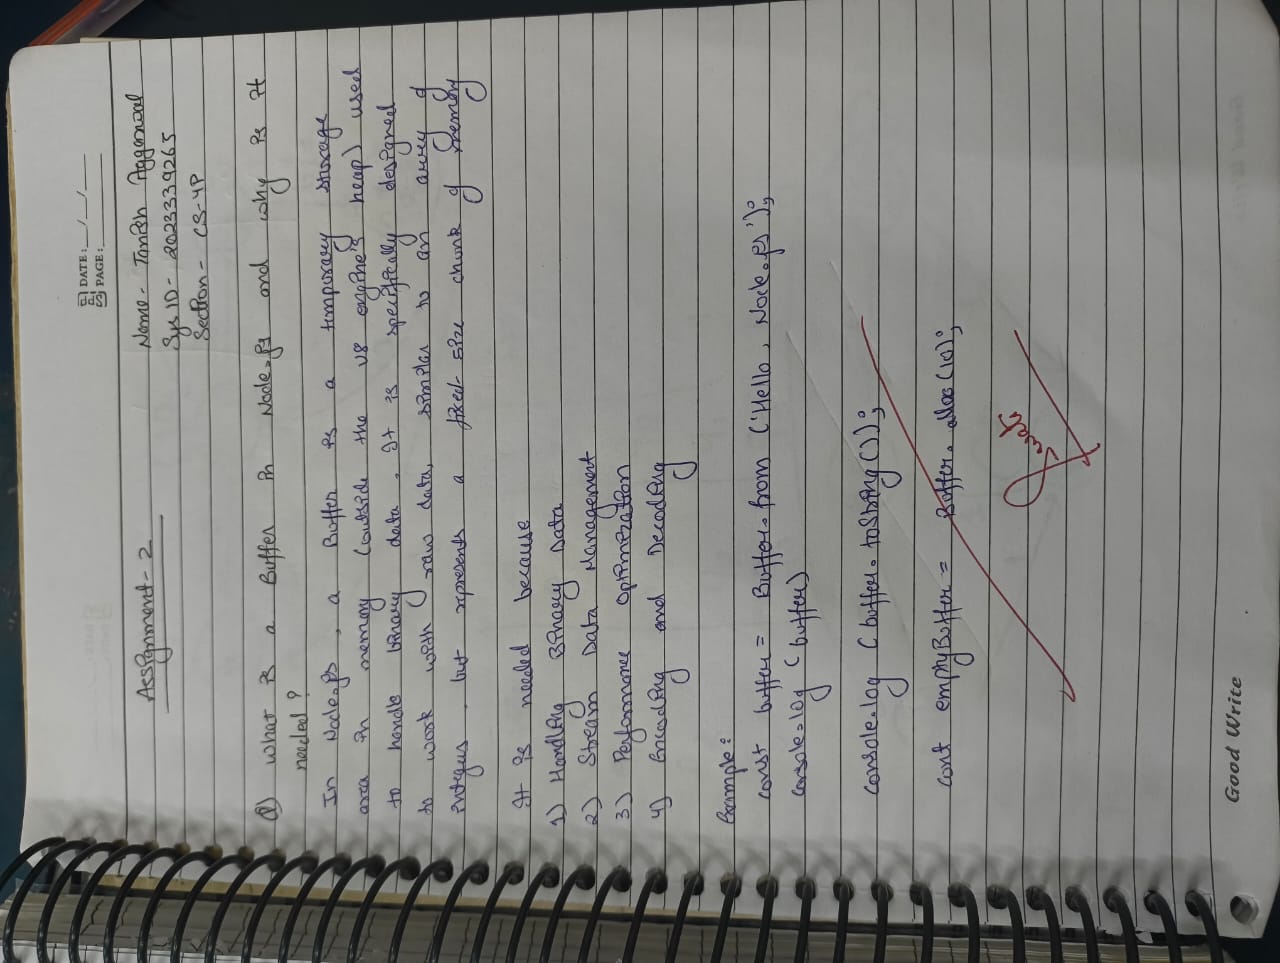 DATE: __/__/____
PAGE: ________
Assignment - 2
Name - Tanish Aggarwal
Sys ID - 2023339265
Section - CS-4P
Q) What is a Buffer in Node.js and why is it
needed?
In Node.js, a Buffer is a temporary storage
area in memory (outside the V8 engine's heap) used
to handle binary data. It is specifically designed
to work with raw data, similar to an array of
integers, but represents a fixed-size chunk of memory
It is needed because
1) Handling Binary Data
2) Stream Data Management
3) Performance Optimization
4) Encoding and Decoding
Example:
const buffer = Buffer.from ('Hello, Node.js');
console.log (buffer)
console.log (buffer.toString());
cont emptyBuffer = Buffer.alloc(10);
Swati
Good Write